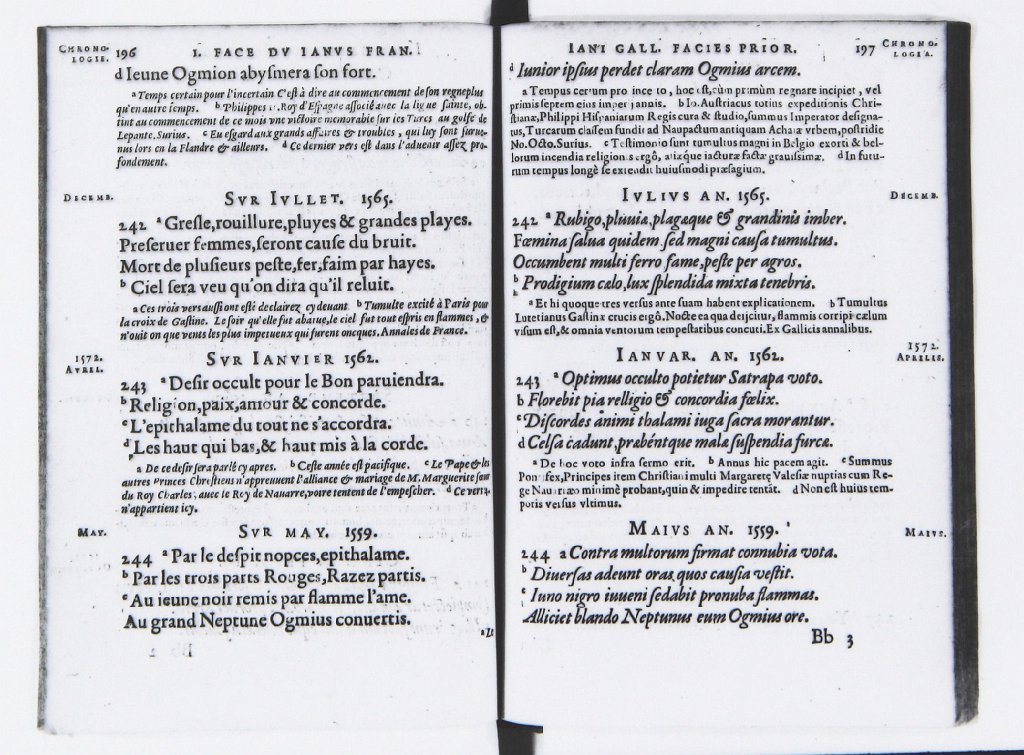 CHRONO-
LOGIE.
196 I. FACE DV IANVS FRAN.
d Ieune Ogmion abysmera son fort.
a Temps certain pour l'incertain C'est à dire au commencement de son regne plus
qu'en autre temps. b Philippes Roy d'Espagne associé auec la ligue sainte, ob-
tint au commencement de ce mois vne victoire memorable sur les Turcs au golfe de
Lepante. Surius. c Eu esgard aux grands affaires & troubles, qui luy sont surue-
nus lors en la Flandre & ailleurs. d Ce dernier vers est dans l'aduenir assez pro-
fondement.
DECEMB.
SVR IVLLET. 1565.
242 a Gresle, rouillure, pluyes & grandes playes.
Preseruer femmes, seront cause du bruit.
Mort de plusieurs peste, fer, faim par hayes.
b Ciel sera veu qu'on dira qu'il reluit.
a Ces trois vers aussi ont esté declairez cy deuant b Tumulte excité à Paris pour
la croix de Gastine. Le soir qu'elle fut abatue, le ciel fut tout espris en flammes, &
n'ouit on que vents les plus impetueux qui furent oncques. Annales de France.
1572.
AVRIL.
SVR IANVIER 1562.
243 a Desir occult pour le Bon paruiendra.
b Religion, paix, amour & concorde.
c L'epithalame du tout ne s'accordra.
d Les haut qui bas, & haut mis à la corde.
a De ce desir sera parlé cy apres. b Ceste année est pacifique. c Le Pape & les
autres Princes Chrestiens n'appreuuent l'alliance & mariage de M. Marguerite sœur
du Roy Charles, auec le Roy de Nauarre, voire tentent de l'empescher. d Ce vers
n'appartient icy.
MAY.
SVR MAY. 1559.
244 a Par le despit nopces, epithalame.
b Par les trois parts Rouges, Razez partis.
c Au ieune noir remis par flamme l'ame.
Au grand Neptune Ogmius conuertis.
IANI GALL. FACIES PRIOR. 197
CHRONO-
LOGIA.
d Iunior ipsius perdet claram Ogmius arcem.
a Tempus certum pro incerto, hoc est, cùm primùm regnare incipiet, vel
primis septem eius imperij annis. b Io. Austriacus totius expeditionis Chri-
stianæ, Philippi Hispaniarum Regis cura & studio, summus Imperator designa-
tus, Turcarum classem fundit ad Naupactum antiquam Achaiæ vrbem, postridie
No. Octo. Surius. c Testimonio sunt tumultus magni in Belgio exorti & bel-
lorum incendia religionis ergô, atque iacturæ factæ grauissimæ. d In futu-
rum tempus longè se extendit huiusmodi præsagium.
DECEMB.
IVLIVS AN. 1565.
242 a Rubigo, pluuia, plagæque & grandinis imber.
Fœmina salua quidem sed magni causa tumultus.
Occumbent multi ferro fame, peste per agros.
b Prodigium cælo, lux splendida mixta tenebris.
a Et hi quoque tres versus ante suam habent explicationem. b Tumultus
Lutetianus Gastinæ crucis ergô. Nocte ea qua deijcitur, flammis corripi cælum
visum est, & omnia ventorum tempestatibus concuti. Ex Gallicis annalibus.
1572.
APRILIS.
IANVAR. AN. 1562.
243 a Optimus occulto potietur Satrapa voto.
b Florebit pia relligio & concordia fœlix.
c Discordes animi thalami iuga sacra morantur.
d Celsa cadunt, præbéntque malæ suspendia furcæ.
a De hoc voto infra sermo erit. b Annus hic pacem agit. c Summus
Pontifex, Principes item Christiani multi Margaretę Valesiæ nuptias cum Re-
ge Nauarræo minimè probant, quin & impedire tentāt. d Non est huius tem-
poris versus vltimus.
MAIVS.
MAIVS AN. 1559.
244 a Contra multorum firmat connubia vota.
b Diuersas adeunt oras quos causia vestit.
c Iuno nigro iuueni sedabit pronuba flammas.
Alliciet blando Neptunus eum Ogmius ore.
Bb 3